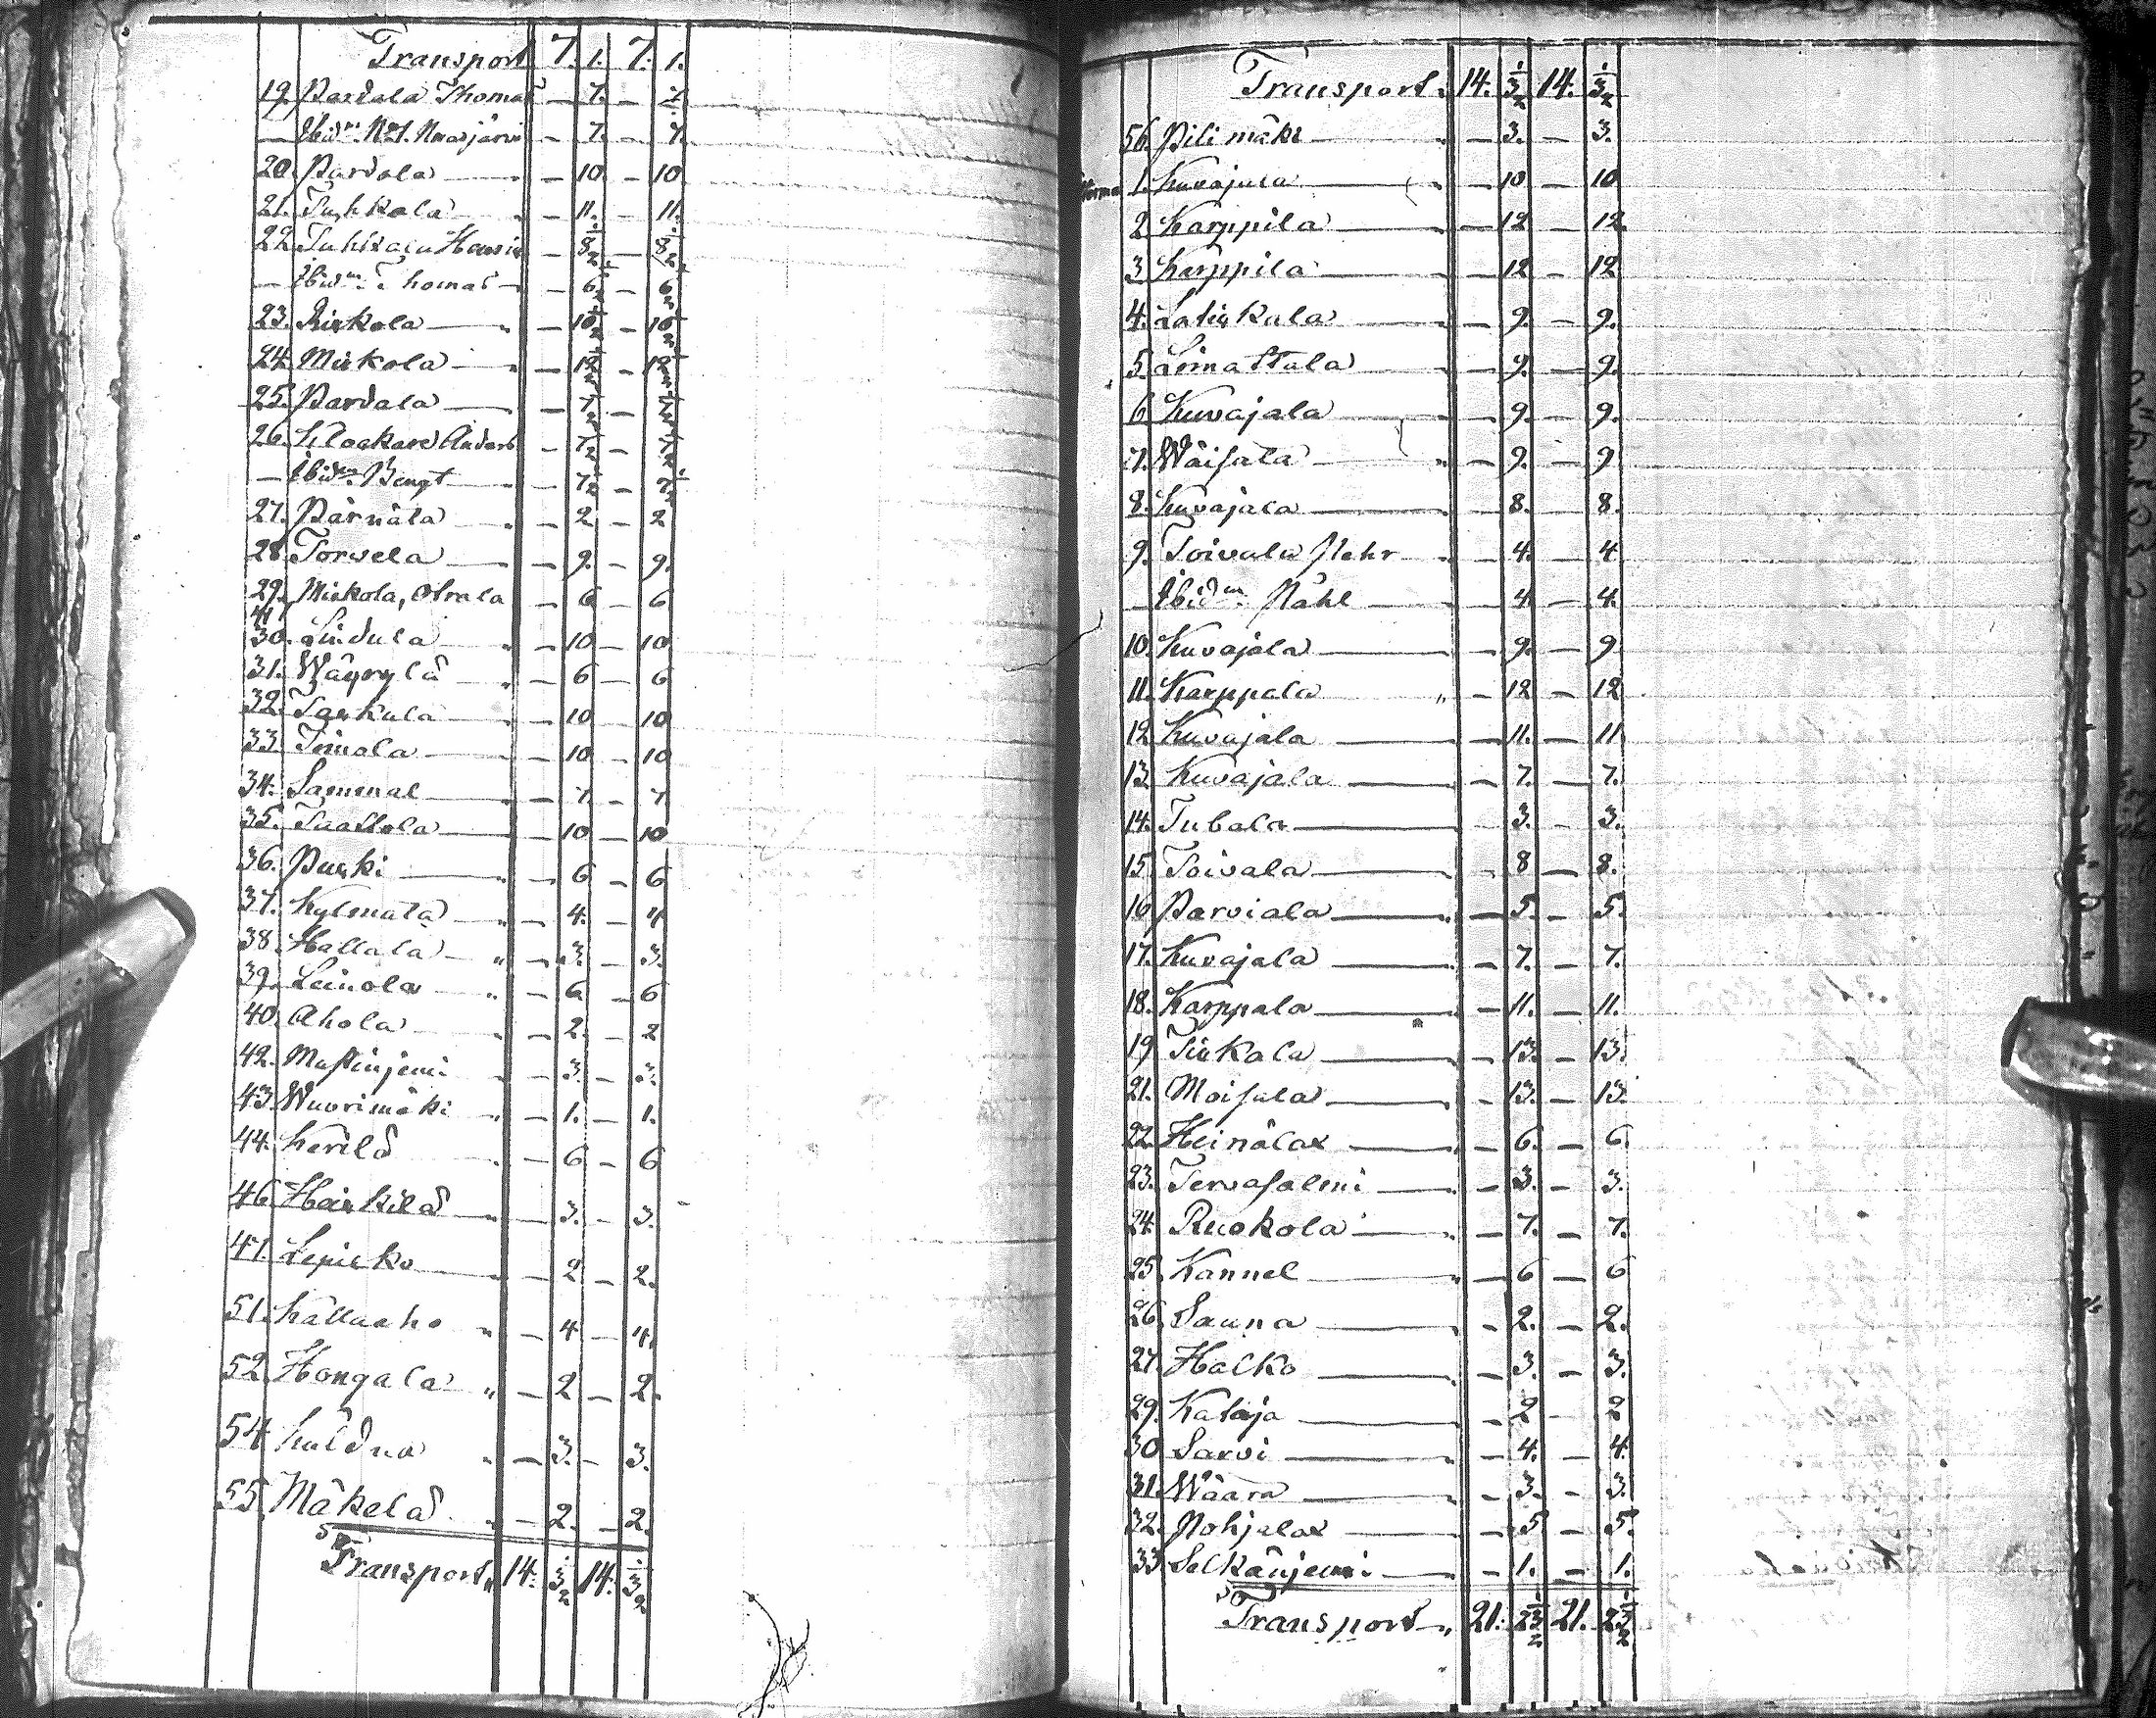 Transport 7. 1. 7. 1.
19. Pardala Thomas — 7. — 7.
— Ibid:m — 7. — 7.
20. Pardala — 10 — 10
21. Tuhkala — 11. — 11.
22. — 8 1/2 — 8 1/2
— Ibid:m Thomas — 6 1/2 — 6 1/2
23. — 10 1/2 — 10 1/2
24. Mickola — 12 1/2 — 12 1/2
25. Pardala — 7 1/2 — 7 1/2
26. Klockare Anders — 7 1/2 — 7 1/2
— Ibid:m Bengt — 7 1/2 — 7 1/2
27. Pärnälä — 2 — 2
28. Torvela — 9. — 9.
29. Mickola, — 6 — 6
41
30. Lindula — 10 — 10
31. Wäyrylä — 6 — 6
32. — 10 — 10
33. Timola — 10 — 10
34. Sammal — 7 — 7
35. Tuattola — 10 — 10
36. Purki — 6 — 6
37. Kylmälä — 4. — 4
38. Hallala — 3. — 3.
39. Leinola — 6 — 6
40. Ahola — 2. — 2
42. — 3. — 3.
43. Wuorimäki — 1. — 1.
44. Kerilä — 6 — 6
46. Heickilä — 3. — 3.
47. — 2 — 2.
51. Kalliaho — 4 — 4.
52. Hongala — 2 — 2.
54. — 3. — 3.
55. Mäkelä — 2. — 2.
Transport 14. 3 1/2 14. 3 1/2
Transport. 14. 3 1/2 14. 3 1/2
56. Pilimäki — 3. — 3.
1. Kuvajala — 10 — 10
2. Karppila — 12 — 12.
3. Karppila — 12 — 12
4. — 9. — 9.
5. Limattala — 9. — 9.
6. Kuvajala — 9. — 9.
7. Wäisälä — 9. — 9
8. Kuvajala — 8. — 8.
9. Toivala Pehr — 4. — 4
— Ibid:m Påhl — 4. — 4.
10. Kuvajala — 9. — 9
11. Karppala — 12 — 12
12. Kuvajala — 11. — 11
13. Kuvajala — 7. — 7.
14. Tubala — 3. — 3.
15. Toivala — 8 — 8.
16. Parviala — 5. — 5.
17. Kuvajala — 7. — 7.
18. Karppala — 11. — 11.
19. — 13. — 13.
21. Moisala — 13. — 13.
22. Heinälax — 6. — 6.
23. Tervasalmi — 3. — 3.
24. Ruokola — 7. — 7.
25. Kannel — 6 — 6
26. Sauna — 2. — 2.
27. Halko — 3. — 3.
29. Kataja — 2 — 2
30 Sarvi — 4. — 4.
31. Waara — 3. — 3.
32. Pohjalax — 5 — 5.
33 Selkäniemi — 1. — 1.
Transport 21. 23 1/2 21. 23 1/2